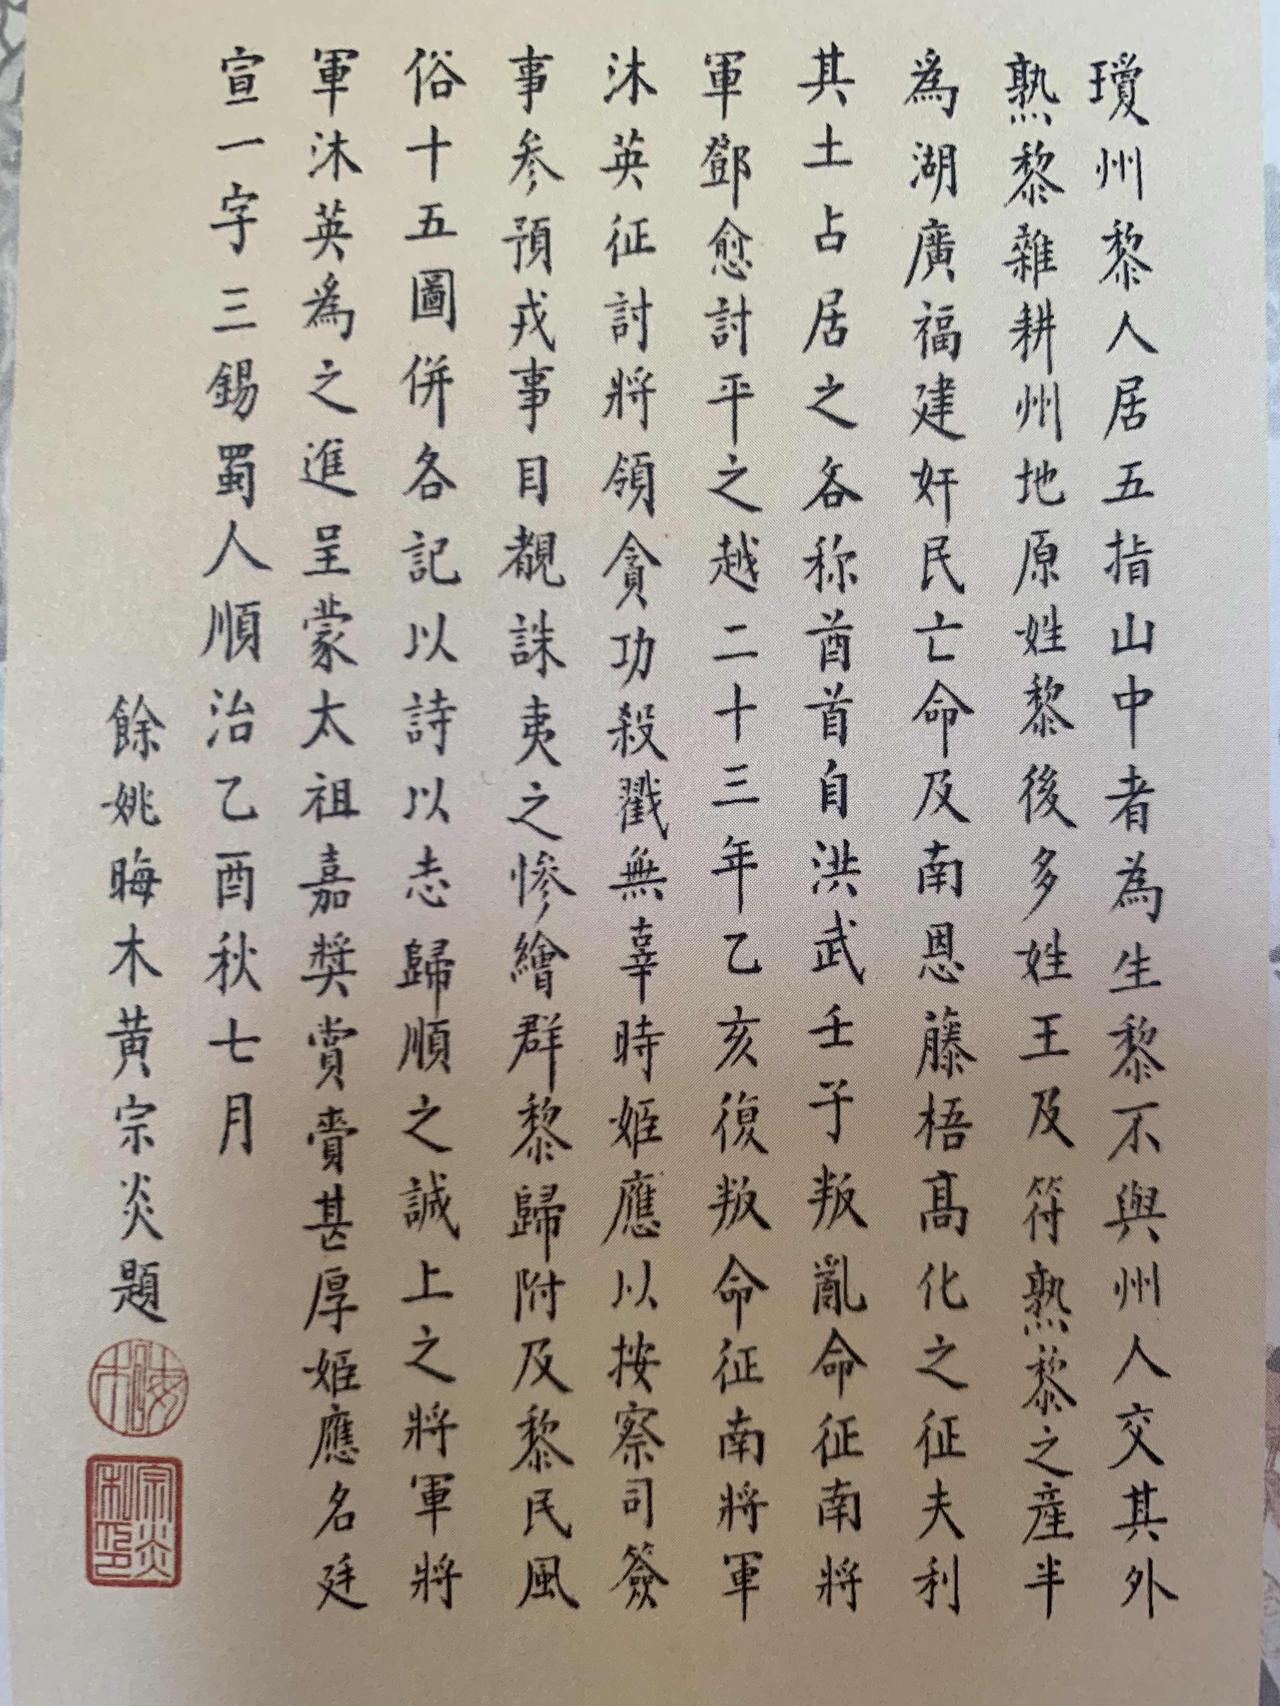 瓊州黎人居五指山中者為生黎不與州人交其外
熟黎雜耕州地原姓黎後多姓王及符熟黎之產半
為湖廣福建奸民亡命及南恩藤梧高化之征夫利
其土占居之各称酋首自洪武壬子叛亂命征南將
軍鄧愈討平之越二十三年乙亥復叛命征南將軍
沐英征討將領貪功殺戮無辜時姬應以按察司簽
事参預戎事目覩誅夷之慘繪群黎歸附及黎民風
俗十五圖併各記以詩以志歸順之誠上之將軍將
軍沐英為之進呈蒙太祖嘉奬賞賚甚厚姬應名廷
宣一字三錫蜀人順治乙酉秋七月
餘姚晦木黄宗炎題
晦木
宗炎私印